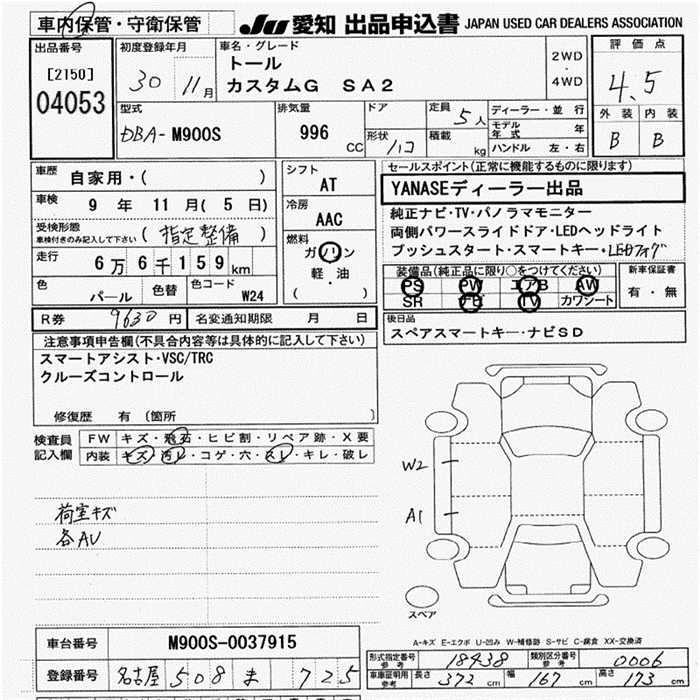 車内保管・守衛保管
JU 愛知 出品申込書 JAPAN USED CAR DEALERS ASSOCIATION
出品番号 [2150] 04053
初度登録年月 30 11月
車名・グレード トール カスタムG SA2
2WD・4WD
評価点 4.5
外装 B 内装 B
型式 DBA-M900S
排気量 996 CC
ドア 形状 ハコ
定員 5人 積載 kg
ディーラー・並行
モデル年式 年
ハンドル 左・右
車歴 自家用・( )
車検 9年 11月(5日)
受検形態 車検付きのみ記入して下さい (指定整備)
走行 6万6千159km
色 パール 色替 色コード W24
シフト AT
冷房 AAC
燃料 ガソリン 軽・油 ( )
セールスポイント(正常に機能するものに限ります)
YANASEディーラー出品
純正ナビ・TV・パノラマモニター
両側パワースライドドア・LEDヘッドライト
プッシュスタート・スマートキー・LEDフォグ
装備品(純正品に限り○をつけてください)
PS PW エアB AW
SR ナビ TV カワシート
新車保証書 有・無
R券 9630円 名変通知期限 月 日
後日品
スペアスマートキー・ナビSD
注意事項申告欄(不具合内容等は具体的に記入して下さい)
スマートアシスト・VSC/TRC
クルーズコントロール
修復歴 有 〔箇所 〕
検査員記入欄
FW キズ・飛石・ヒビ割・リペア跡・X要
内装 キズ・汚レ・コゲ・穴・スレ・キレ・破レ
荷室キズ
各AU
W2
A1
スペア
A-キズ E-エクボ U-凹み W-補修跡 S-サビ C-腐食 XX-交換済
車台番号 M900S-0037915
登録番号 名古屋 508 ま 725
形式指定番号 参考 18438 類別区分番号 参考 0006
車庫証明用 参考 長さ 372cm 幅 167cm 高さ 173cm